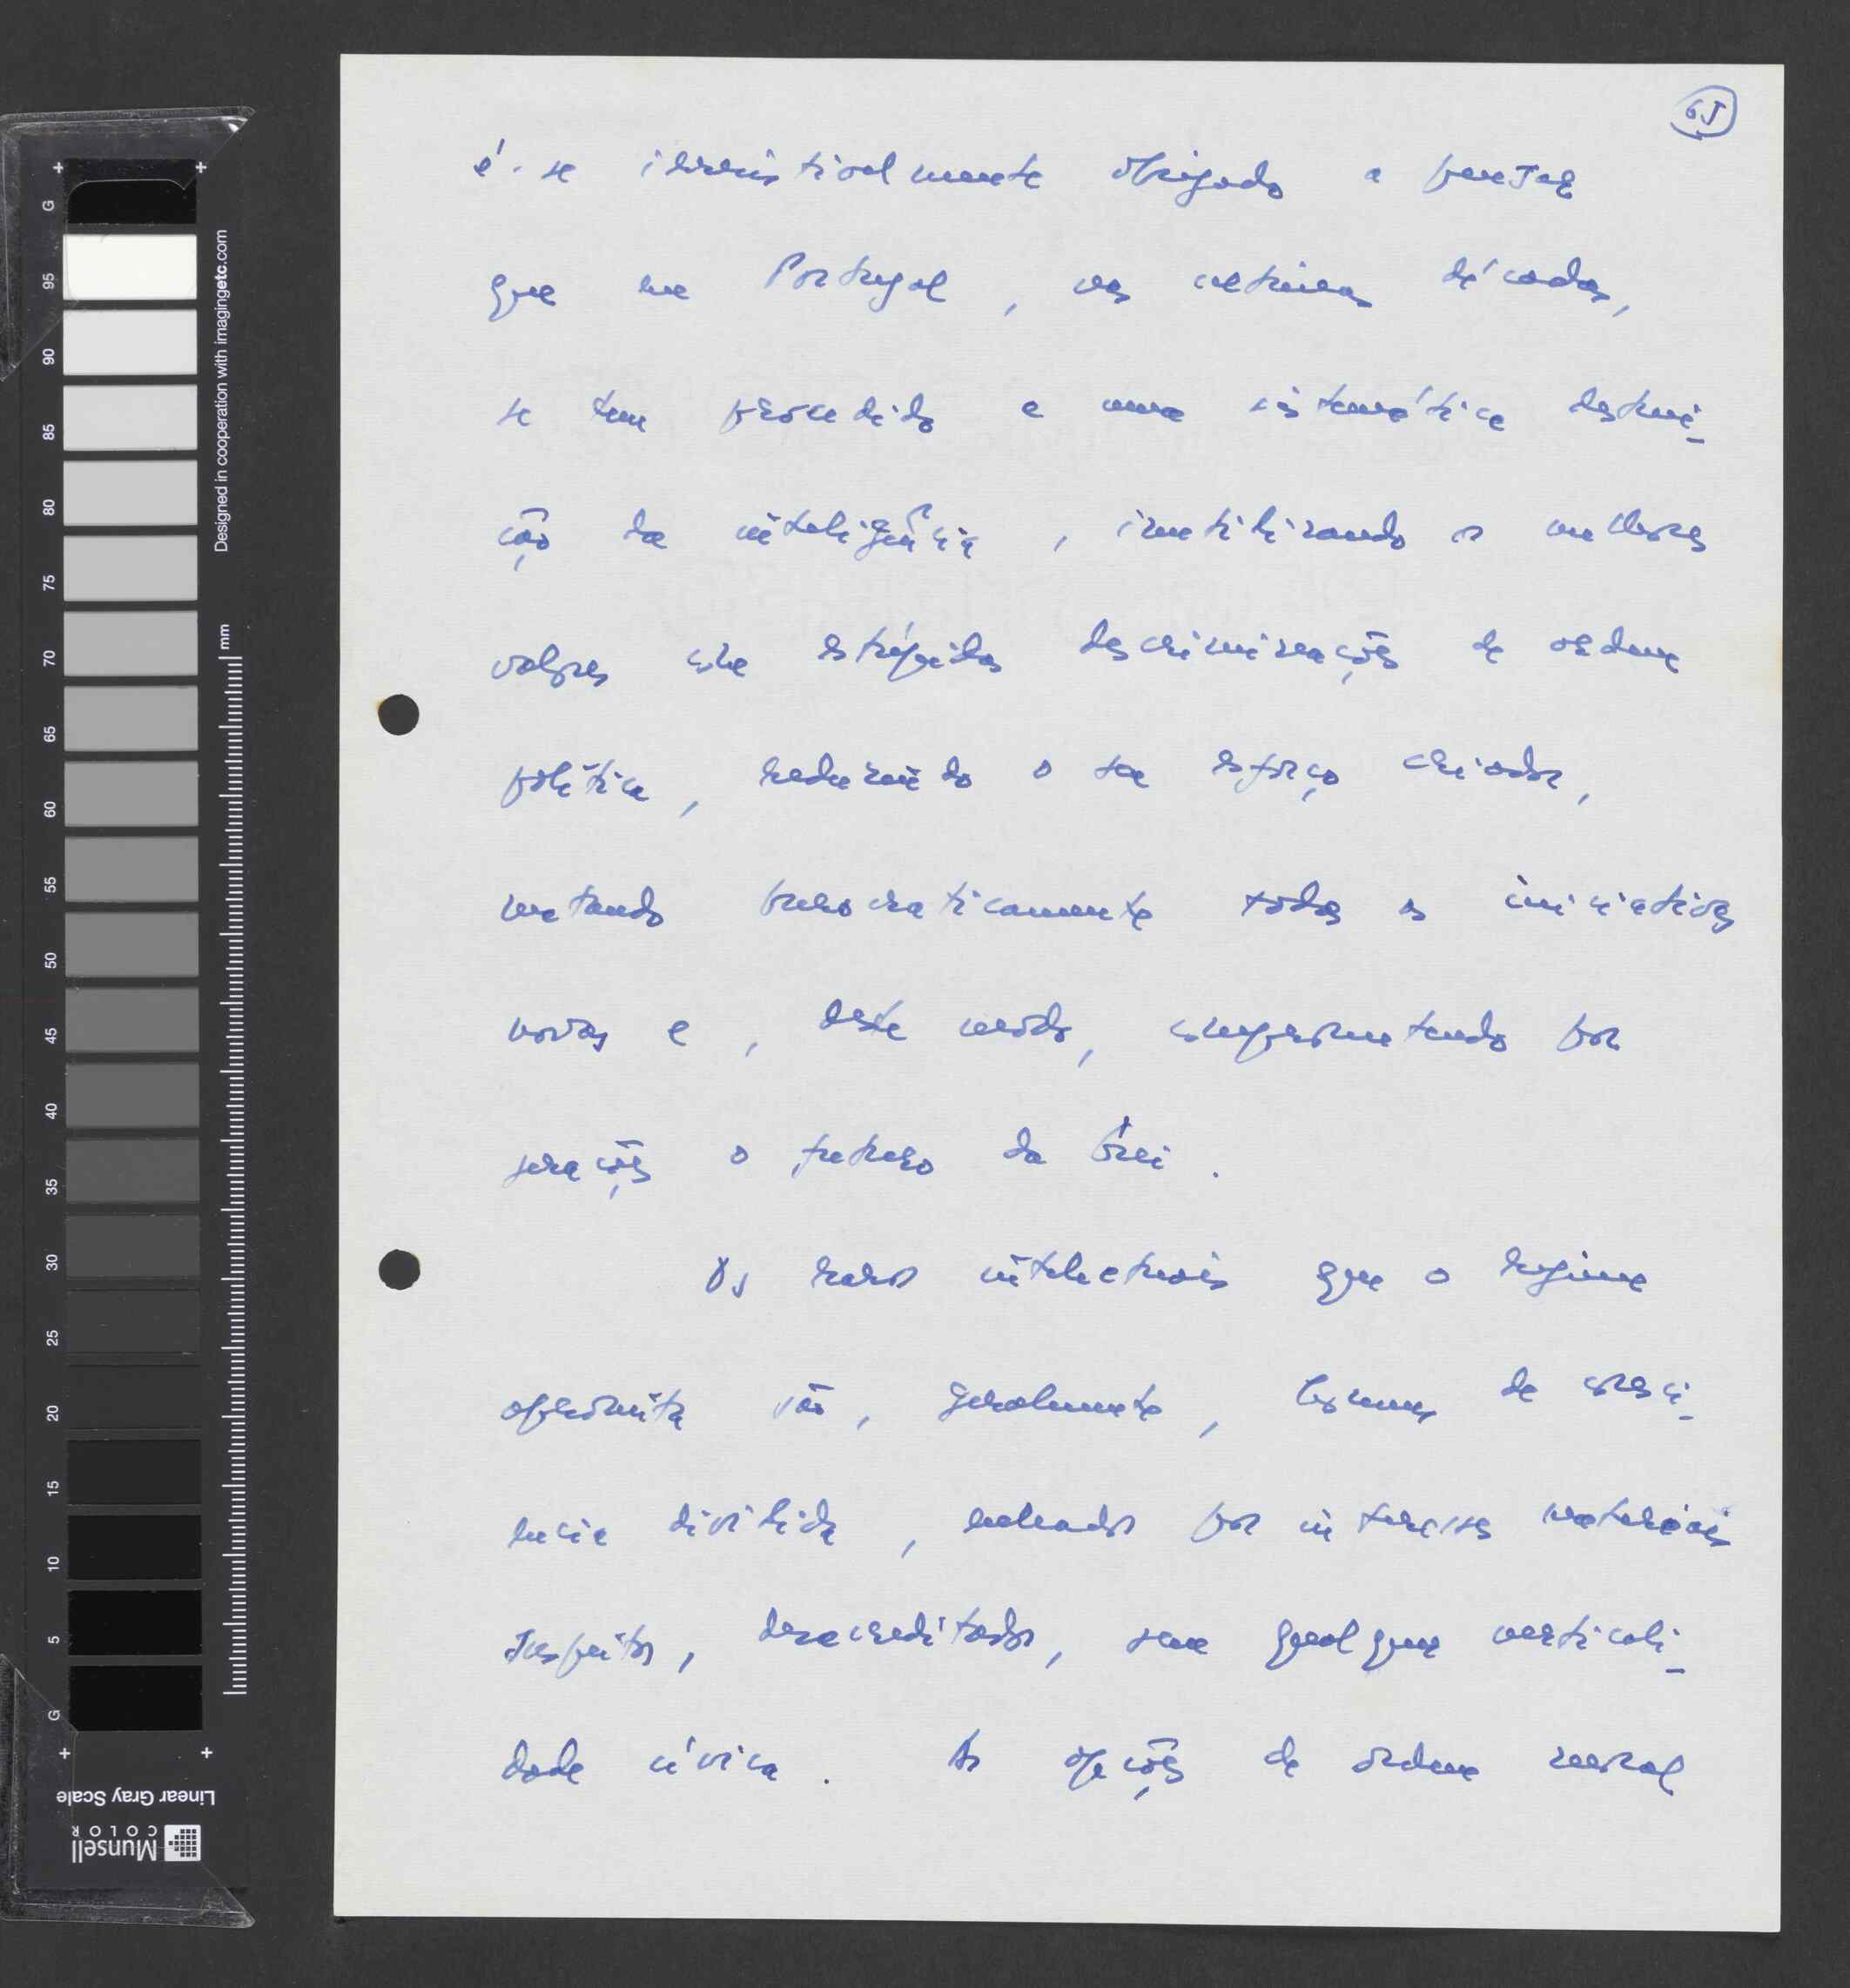 65
é-se irresistivelmente obrigado a pensar
que em Portugal, nas últimas décadas,
se tem procedido a uma sistemática destrui-
ção da inteligência, inutilizando os melhores
valores com estúpidas descriminações de ordem
política, reduzindo o seu esforço criador,
matando burocraticamente todas as iniciativas
novas e, deste modo, comprometendo por
gerações o futuro da Grei.
Os raros intelectuais que o regime
aproveita são, geralmente, homens de consci-
ência dividida, movidos por interesses materiais
suspeitos, desacreditados, sem qualquer verticali-
dade cívica. As opções de ordem moral
Designed in cooperation with imagingetc.com
mm
G 95 90 85 80 75 70 65 60 55 50 45 40 35 30 25 20 15 10 5 G
Linear Gray Scale
Munsell
COLOR